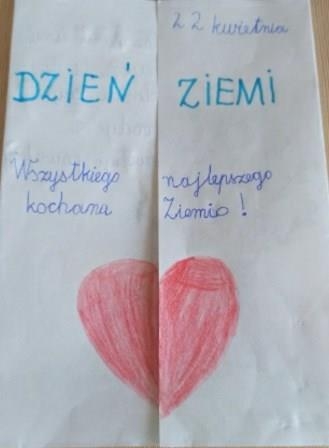 22 kwietnia
DZIEŃ ZIEMI
Wszystkiego najlepszego
kochana Ziemio!